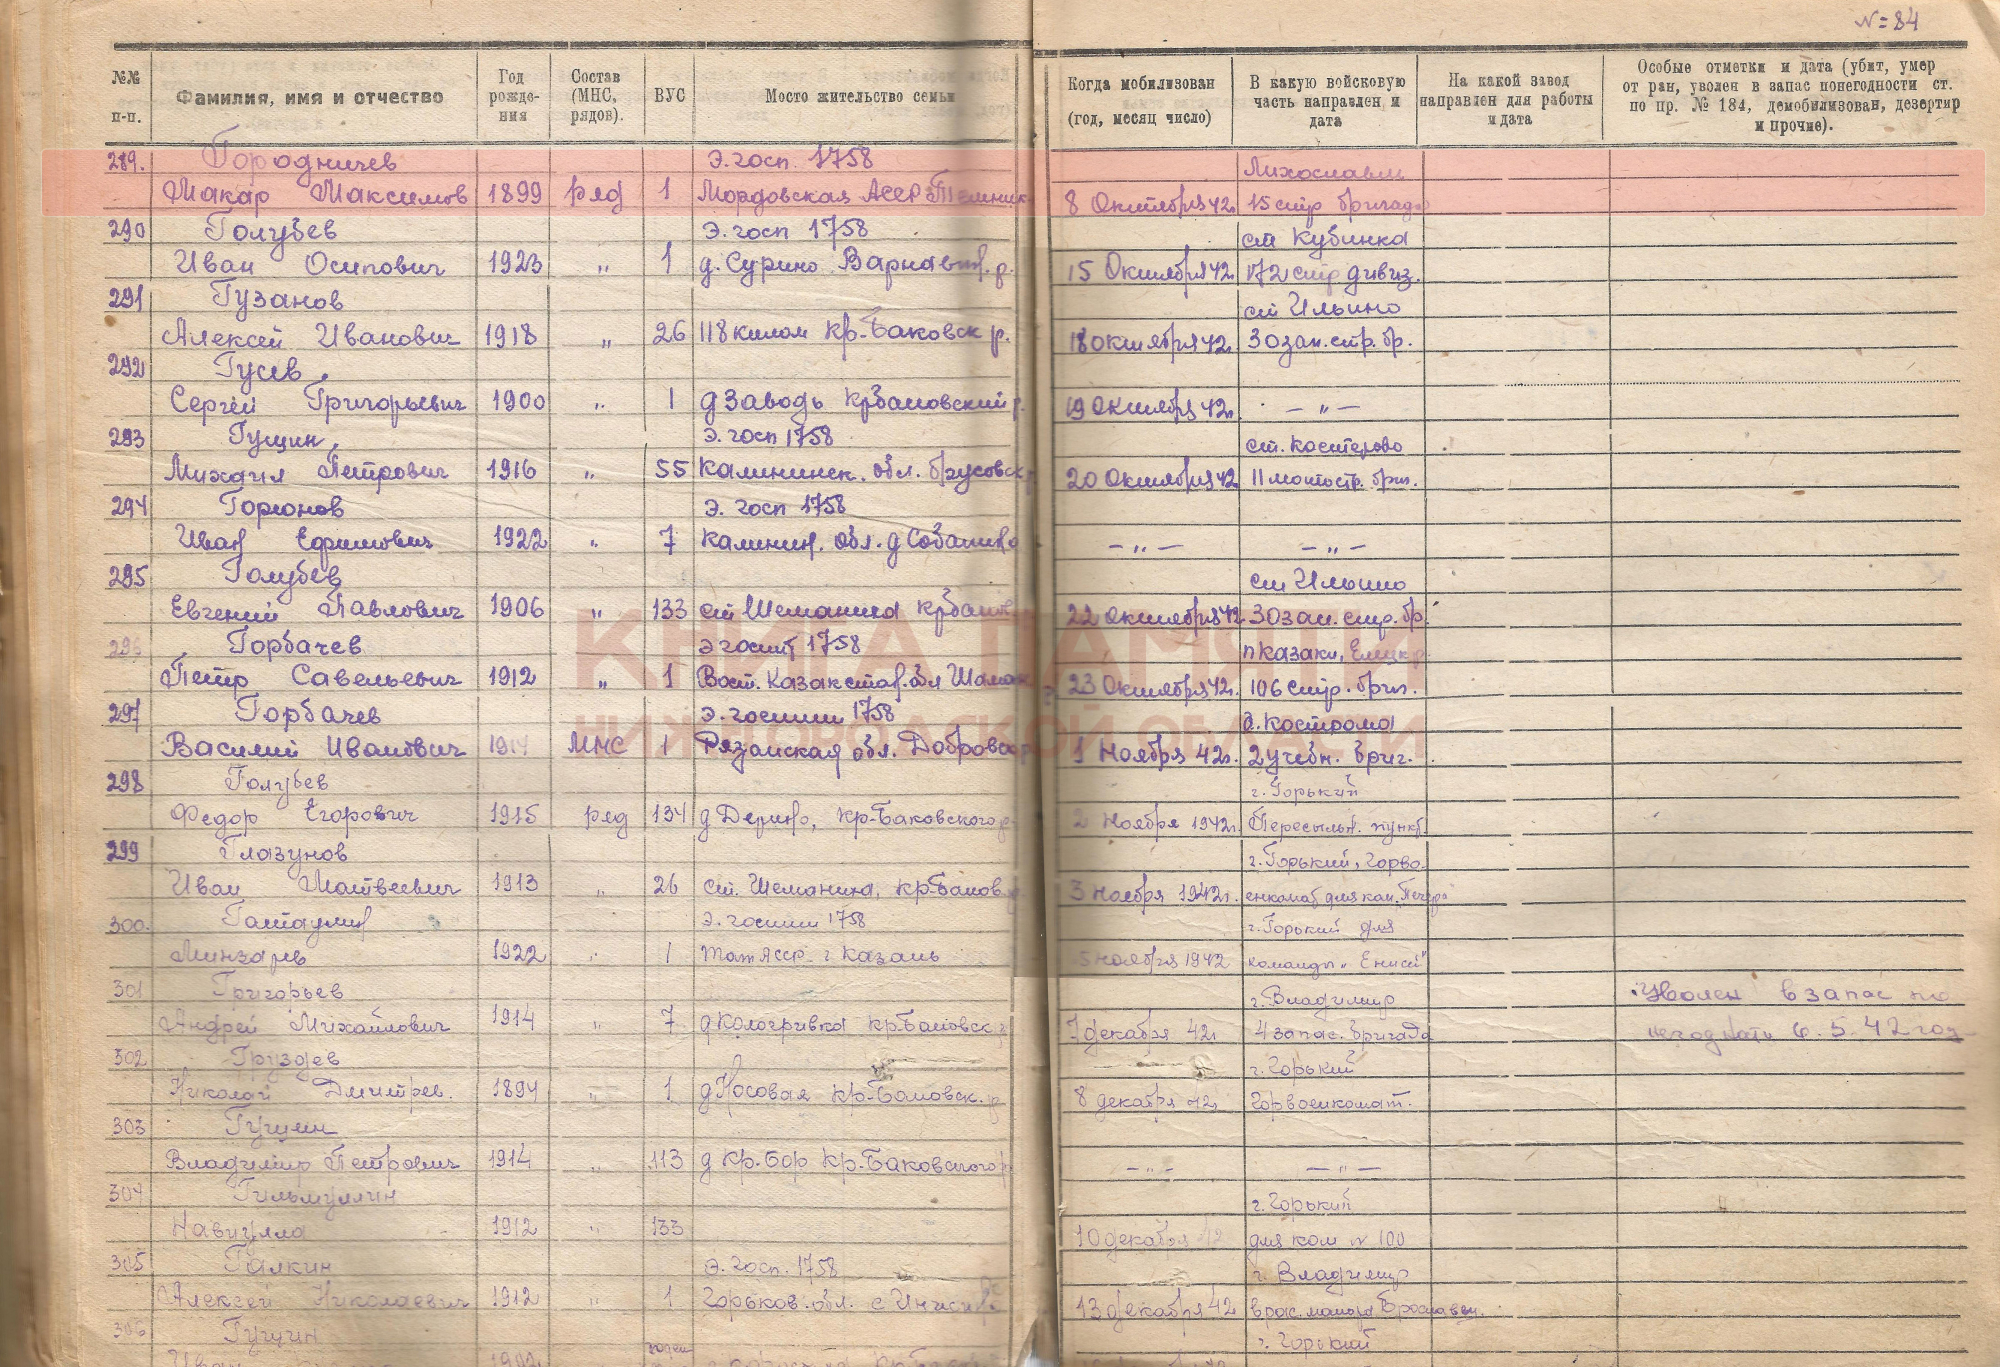 № 84
№№ п-п. Фамилия, имя и отчество Год рожде- ния Состав (МНС, рядов). ВУС Мосто жительство семьи Когда мобилизован (год, месяц число) В какую войсковую часть направлен и дата На какой завод направлен для работы и дата Особые отметки и дата (убит, умер от ран, уволен в запас понегодности ст. по пр. № 184, демобилизован, дезертир и прочие).
289. Городничев Э. госп. 1758 Лихославль
Макар Максимов 1899 ряд 1 Мордовская АССР 8 Октября 42г. 15 стр бригад
290 Голубев Э. госп 1758 ст Кубинка
Иван Осипович 1923 „ 1 д. Сурино Варнавин. р. 15 Октября 42г. 172 стр дивиз.
291 Гузанов ст Ильино
Алексей Иванович 1918 „ 26 118 килом Кр-Баковск р. 18 октября 42г. 30 зап. стр. бр.
292 Гусев
Сергей Григорьевич 1900 „ 1 д Заводь КрБаковский р. 19 Октября 42г. — „ —
293 Гущин Э. госп 1758 ст. Костерово
Михаил Петрович 1916 „ 55 Калининск. обл. 20 Октября 42 11 мотостр. бриг.
294 Горюнов Э. госп 1758
Иван Ефимович 1922 „ 7 Калинин. обл. д — „ — — „ —
295 Голубев ст Ильино
Евгений Павлович 1906 „ 133 ст Шеманиха КрБаков 22 Октября 42 30 зап. стр. бр.
296 Горбачев Э госпит 1758 п Казаки, Елецк р.
Петр Савельевич 1912 „ 1 Вост. Казакстан. обл 23 Октября 42г. 106 стр. бриг.
297 Горбачев Э. госпит 1758 г. Кострома
Василий Иванович МНС 1 Рязанская обл. 1 Ноября 42г. 2 учебн. бриг.
298 Голубев г. Горький
Федор Егорович 1915 ряд 134 д Дерино, Кр-Баковского р. 2 Ноября 1942г. Пересыльн. пункт
299 Глазунов г. Горький, Горво-
Иван Матвеевич 1913 „ 26 ст. Шеманиха, Кр-Баков. р. 3 Ноября 1942г. енкомат для ком.
300. Э. госпит 1758 г. Горький для
1922 „ 1 Тат АССР г Казань 5 Ноября 1942 команды „Енисей"
301 Григорьев г. Владимир Уволен в запас по
Андрей Михайлович 1914 „ 7 д Кологривка Кр.Баковск. р. 7 декабря 42г. 4 запас. бригада негодности 6. 5. 42 год
302 Груздев г. Горький
Николай Дмитрев. „ 1 д Носовая Кр-Баковск. р 8 декабря 42г Горвоенкомат.
303 Гущин
Владимир Петрович 1914 „ 113 д Кр. Бор Кр. Баковского р — „ — — „ —
304 Гильмуллин г. Горький
1912 „ 133 10 декабря 42 для ком № 100
305 Галкин Э. госп. 1758 г. Владимир
Алексей Николаевич 1912 „ 1 Горьков. обл. 13 декабря 42
306 Гущин г. Горький
Иван
КНИГА ПАМЯТИ
НИЖЕГОРОДСКОЙ ОБЛАСТИ